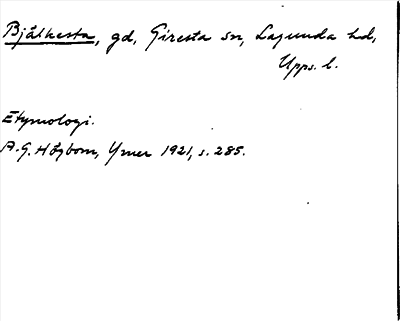 Bjälkesta, gd, Giresta sn, Lagunda hd,
Upps. l.
Etymologi.
A.G. Högbom, Ymer 1921, s. 285.